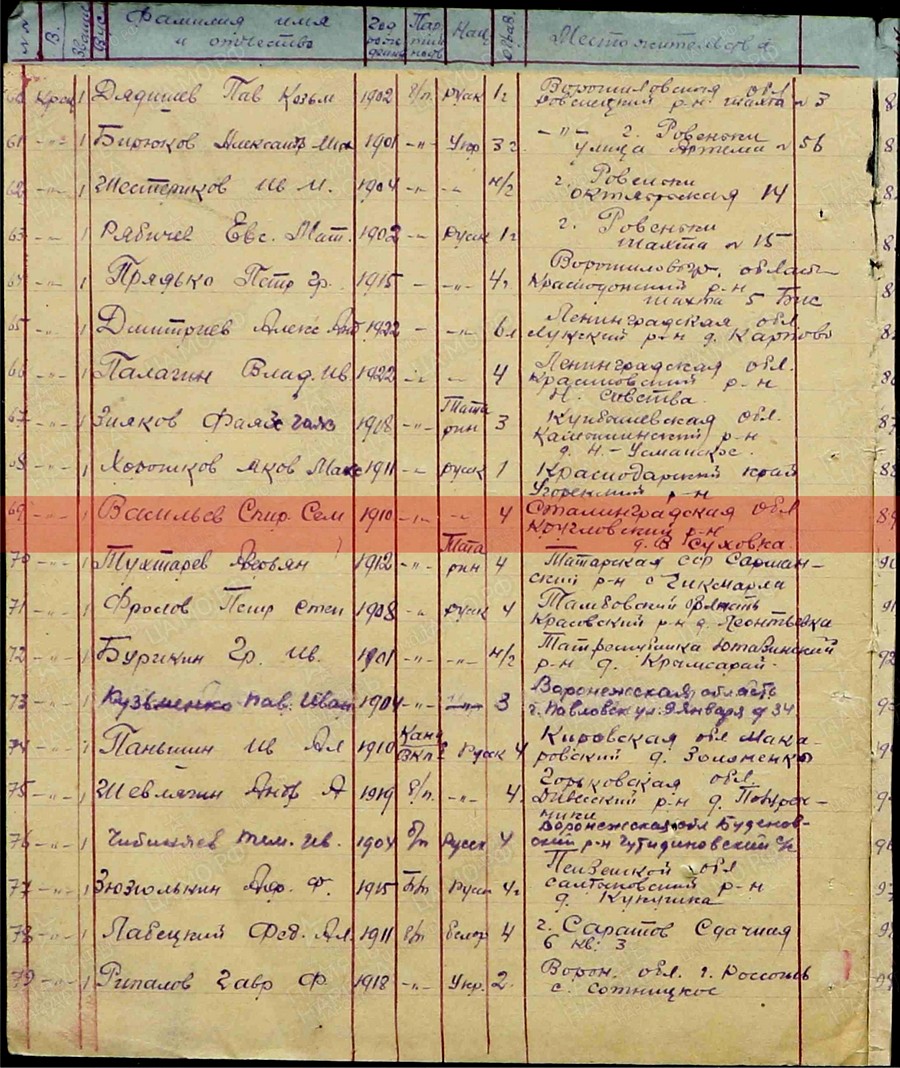 №№ В. Звание Вус Фамилия имя и отчество Год рождения Пар тий ность Нац. Образ. Местожительство
60 Крац 1 Дядищев Пав Козьм 1902 б/п. русск 1г Ворошиловская обл
Ровенецкий р-н шахта №3
61 -"- 1 Бирюков Александр Мих 1901 -"- Укр 3 г. -"- г. Ровеньки
улица Артема №56
62 -"- 1 Шестериков Ив И. 1904 -"- -"- н/г г. Ровеньки
октябрьская 14
63 -"- 1 Рябичев Евс. Мат. 1902 -"- русск 1г г. Ровеньки
шахта №15
64 -"- 1 Прядько Петр Гр. 1915 -"- -"- 4г. Ворошиловогр. область
Краснодонский р-н
шахта 5 Бис
65 -"- 1 Дмитриев Алекс Ант 1922 - -"- 6л Ленинградская обл
Лужский р-н д. Карпово
66 -"- 1 Палагин Влад. Ив. 1922 -"- -"- 4 Ленинградская обл.
р-н
67 -"- 1 Зияков 1908 -"- Тата
рин 3 Куйбышевская обл.
р-н
д. Н-Усманское.
68 -"- 1 Хорошков Яков Макс 1911 -"- русск 1 Краснодарский край
р-н
69 -"- 1 Васильев Спир. Сем 1910 -"- -"- 4 Сталинградская обл
Кругловский р-н
д. В Суховка.
70 -"- 1 Тухтарев 1912 -"- Тата
рин 4 Татарская ССР Сарман-
ский р-н с Чикмарла
71 -"- 1 Фролов Петр Степ 1908 -"- русск 4 Тамбовский область
р-н д. Леонтьевка
72 -"- 1 Бурикин Гр. Ив. 1901 -"- -"- н/г Татреспублика Ютазинский
р-н д. Крымсарай.
73 -"- 1 Кузьменко Пав. Иван 1904 -"- -"- 3 Воронежская область
г. Павловск ул. 9 Января д 34
74 -"- 1 Паньшин Ив Ал 1910 Канд
ВКПб Русск 4 Кировская обл Мака-
ровский д.
75 -"- 1 Шевлягин Андр А 1919 б/п. -"- 4. Горьковская обл.
р-н д.
76 -"- 1 Тим. Ив. 1904 б/п Русск 4 Воронежская обл Буденов-
ский р-н с/с
77 -"- 1 Зюзюлькин Ф. 1915 б/п Русск 4г Пензенской обл
р-н
д.
78 -"- 1 Лабецкий Фед. Ал. 1911 б/п белор 4 г. Саратов Сдачная
6 кв. 3
79 -"- 1 Рипалов Гавр Ф. 1918 -"- Укр. 2. Ворон. обл. г. Россошь
с. Сотницкое